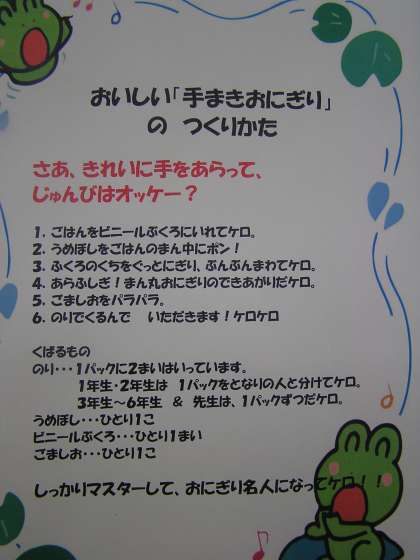 おいしい「手まきおにぎり」
の つくりかた
さあ、きれいに手をあらって、
じゅんびはオッケー？
1. ごはんをビニールぶくろにいれてケロ。
2. うめぼしをごはんのまん中にポン！
3. ふくろのくちをぐっとにぎり、ぶんぶんまわてケロ。
4. あらふしぎ！まん丸おにぎりのできあがりだケロ。
5. ごましおをパラパラ。
6. のりでくるんで いただきます！ケロケロ
くばるもの
のり・・・1パックに2まいはいっています。
1年生・2年生は 1パックをとなりの人と分けてケロ。
3年生～6年生 & 先生は、1パックずつだケロ。
うめぼし・・・ひとり1こ
ビニールぶくろ・・・ひとり1まい
ごましお・・・ひとり1こ
しっかりマスターして、おにぎり名人になってケロ！！